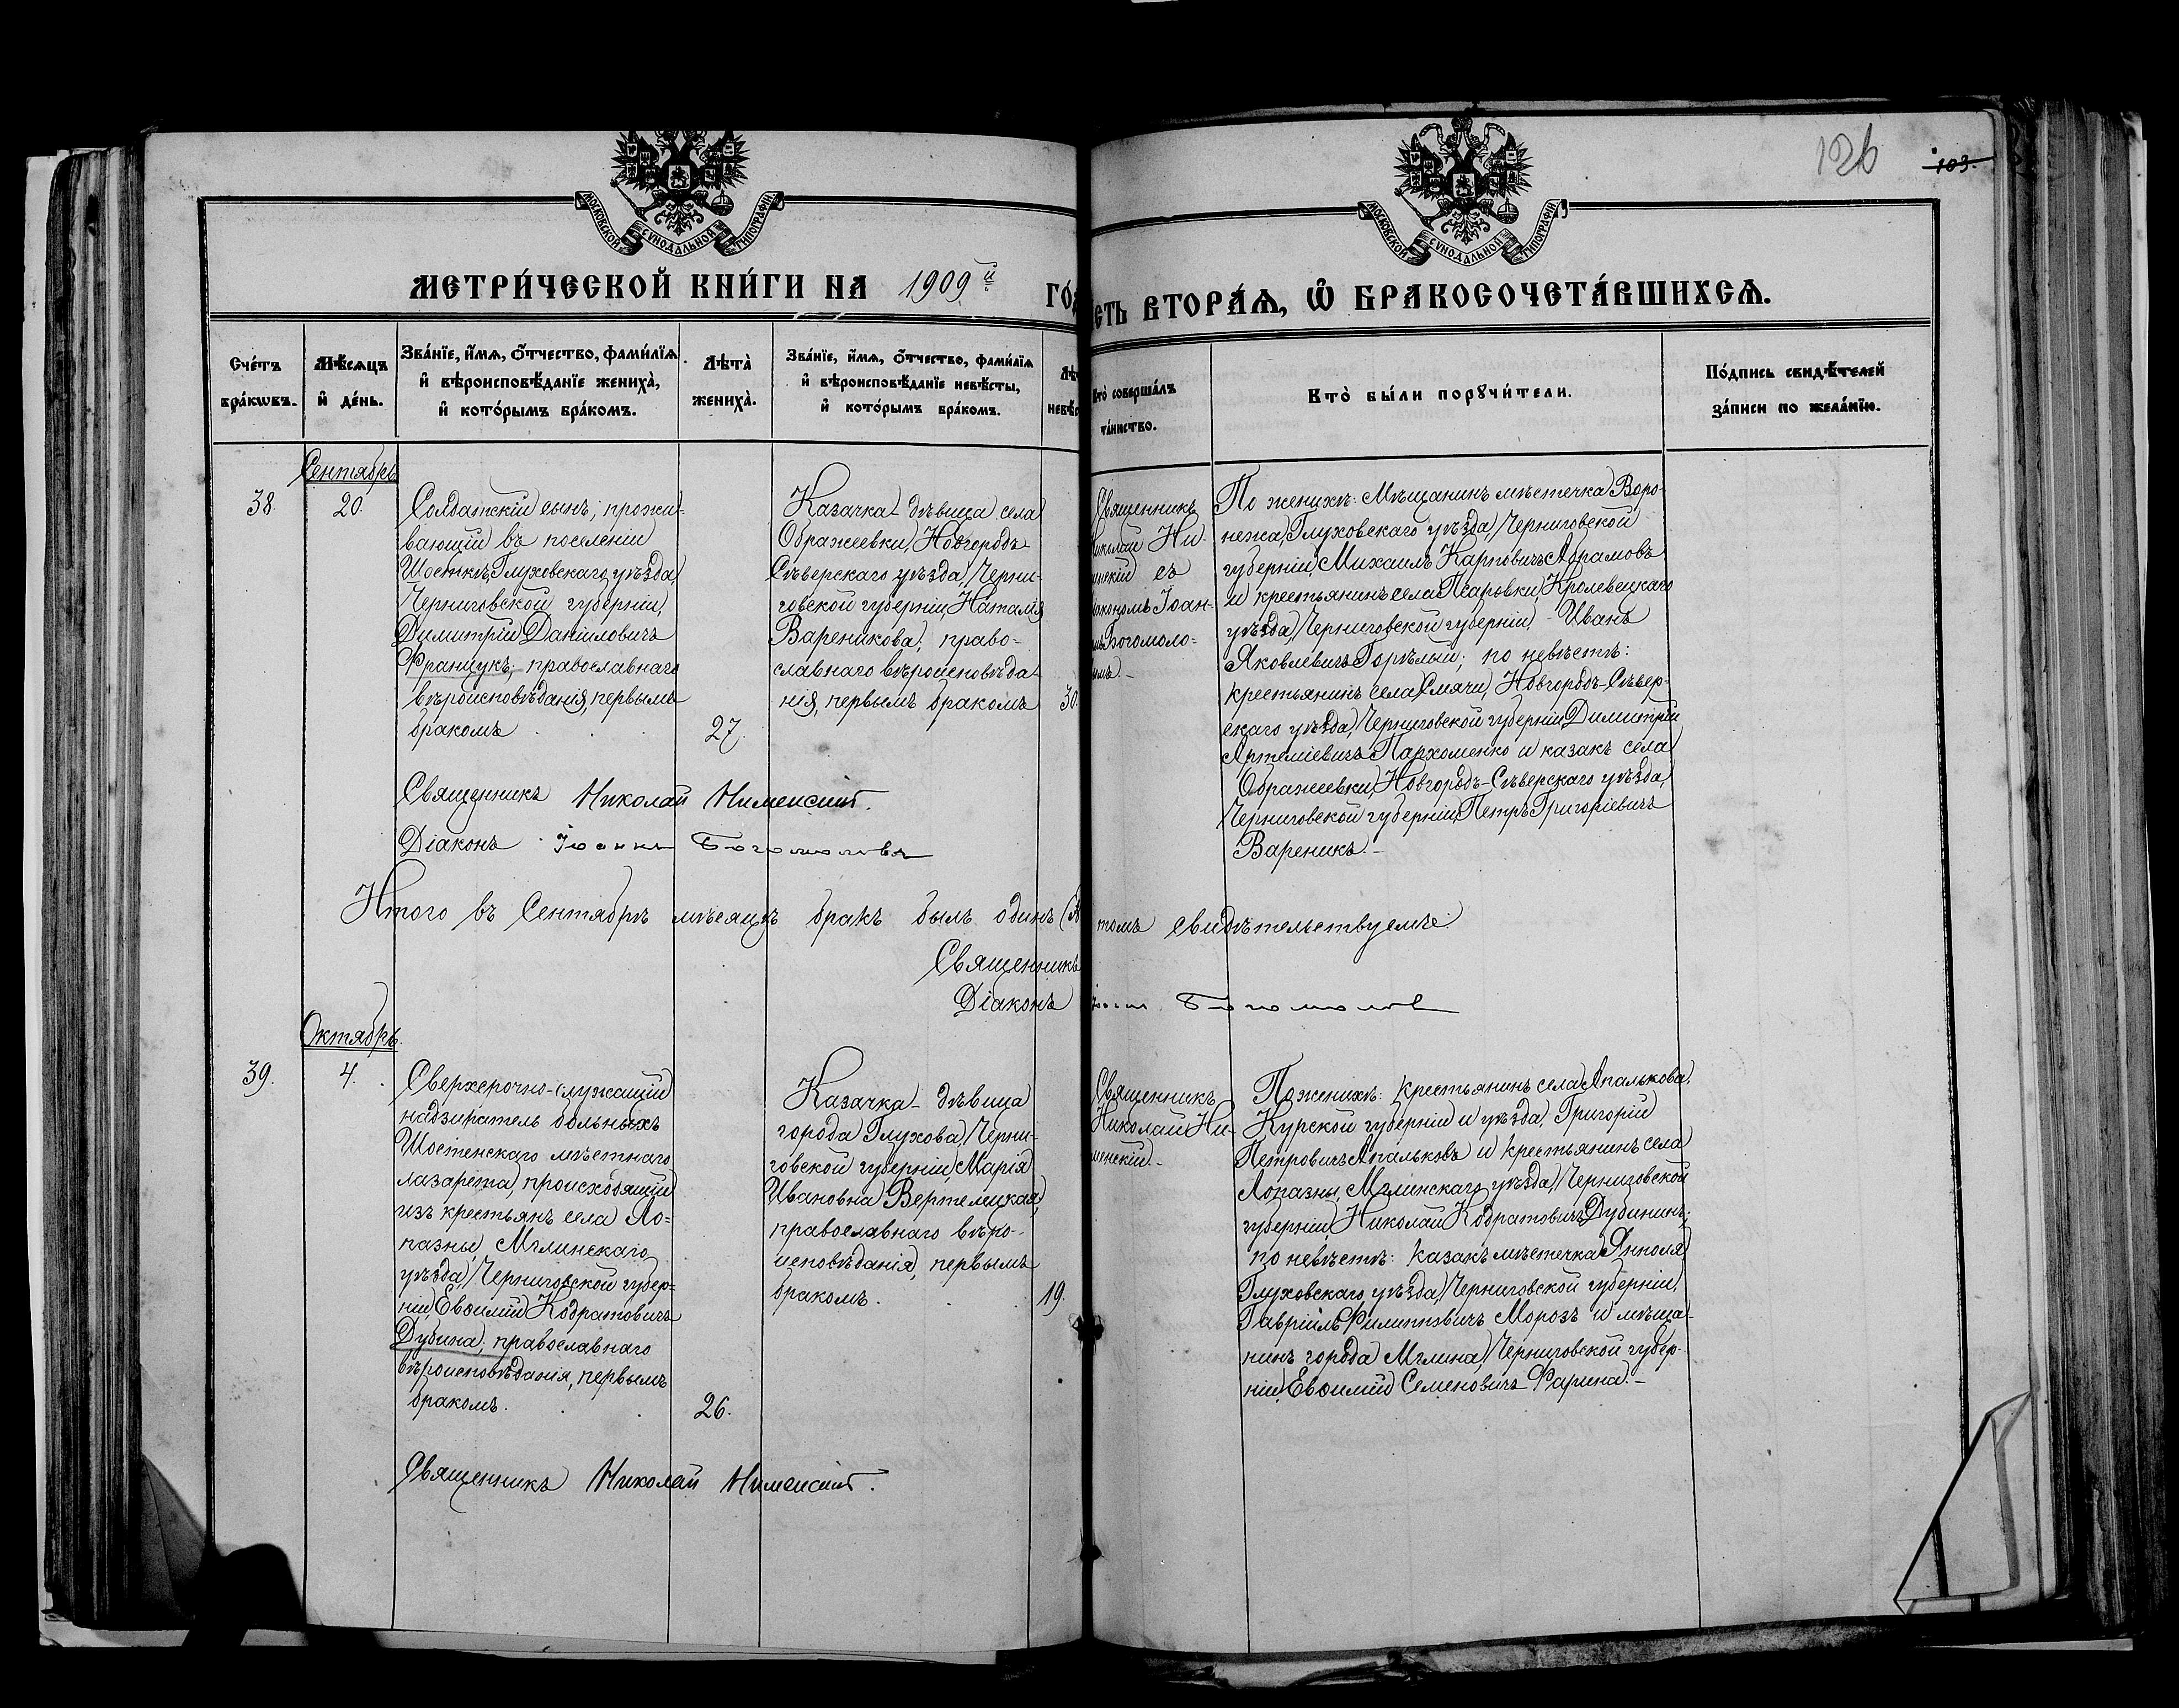 126
103.
МОСКОВСКОЙ СѴНОДАЛЬНОЙ ТИПОГРАФІИ
МОСКОВСКОЙ СѴНОДАЛЬНОЙ ТИПОГРАФІИ
МЕТРИ́ЧЕСКОЙ КНИ́ГИ НА 1909й ГО́Д
СТЬ ВТОРА́Ѧ, Ѽ БРАКОСОЧЕТА́ВШИХСѦ.
Сче́тъ
бра́кѡвъ.
Мѣ́сѧцъ
и҆ де́нь.
Зва́нїе, и҆́мѧ, ѻ҆́тчество, фами́лїѧ
и҆ вѣроисповѣ́данїе жениха̀,
и҆ кото́рымъ бра́комъ.
Лѣ́та̀
жениха̀.
Зва́нїе, и҆́мѧ, ѻ҆́тчество, фами́лїѧ
и҆ вѣроисповѣ́данїе невѣ́сты,
и҆ кото́рымъ бра́комъ.
Лѣ́т
невѣ́
Кто̀ соверша́лъ
та́инство.
Кто̀ бы́ли порꙋчи́тели.
По́дпись свидѣ́телей
за́писи по жела́нїю.
Сентябрь
38.
20.
Солдатскій сынъ, прожи-
вающій въ поселеніи
Шосткѣ, Глуховскаго уѣзда,
Черниговской губерніи,
Димитрій Даніиловичъ
Францукъ; православнаго
вѣроисповѣданія, первымъ
бракомъ
27.
Казачка-дѣвица села
Ображеевки, Новгородъ-
Сѣверскаго уѣзда, Черни-
говской губерніи, Наталія
Вареникова; право-
славнаго вѣроисповѣда-
нія, первымъ бракомъ
30.
Священникъ
Николай Ни-
менскій съ
діакономъ Іоан-
мъ Богомоло-
ымъ.-
По женихѣ: Мѣщанинъ мѣстечка Воро-
нежа, Глуховскаго уѣзда, Черниговской
губерніи, Михаилъ Карповичъ Абрамовъ
и крестьянинъ села Псаровки, Кролевецкаго
уѣзда, Черниговской губерніи, - Иванъ
Яковлевичъ Горѣлый; по невѣстѣ:
крестьянинъ села Смячи, Новгородъ-Сѣвер-
скаго уѣзда, Черниговской губерніи Димитрій
Артеміевичъ Пархоменко и казакъ села
Ображеевки, Новгородъ-Сѣверскаго уѣзда,
Черниговской губерніи, Петръ Григоріевичъ
Вареникъ.-
Священникъ Николай Нименскій.
Діаконъ Іоаннъ Богомоловъ
Итого въ Сентябрѣ мѣсяцѣ бракъ былъ одинъ
томъ свидѣтельствуемъ:
Священникъ
Діаконъ Богомоловъ
Октябрь.
39.
4.
Сверхсрочно-служащій
надзиратель больныхъ
Шостенскаго мѣстнаго
лазарета, происходящій
изъ крестьянъ села Ло=
пазны, Мглинскаго
уѣзда, Черниговской губер=
ніи, Евѳимій Кодратовичъ
Дубина; православнаго
вѣроисповѣданія, первымъ
бракомъ.
26.
Казачка-дѣвица
города Глухова, Черни-
говской губерніи, Марія
Ивановна Вертелецкая,
православнаго вѣро-
исповѣданія, первымъ
бракомъ.
19.
Священникъ
Николай Ни-
менскій.-
По женихѣ: крестьянинъ села Апалькова,
Курской губерніи и уѣзда, Григорій
Петровичъ Апальковъ и крестьянинъ села
Лопазны, Мглинскаго уѣзда, Черниговской
губерніи, Николай Кодратовичъ Дубининъ;
по невѣстѣ: казакъ мѣстечка Ямполя
Глуховскаго уѣзда, Черниговской губерніи,
Гавріилъ Филипповичъ Морозъ и мѣща-
нинъ города Мглина, Черниговской губер-
ніи, Евѳимій Семеновичъ Фарина.-
Священникъ Николай Нименскій.